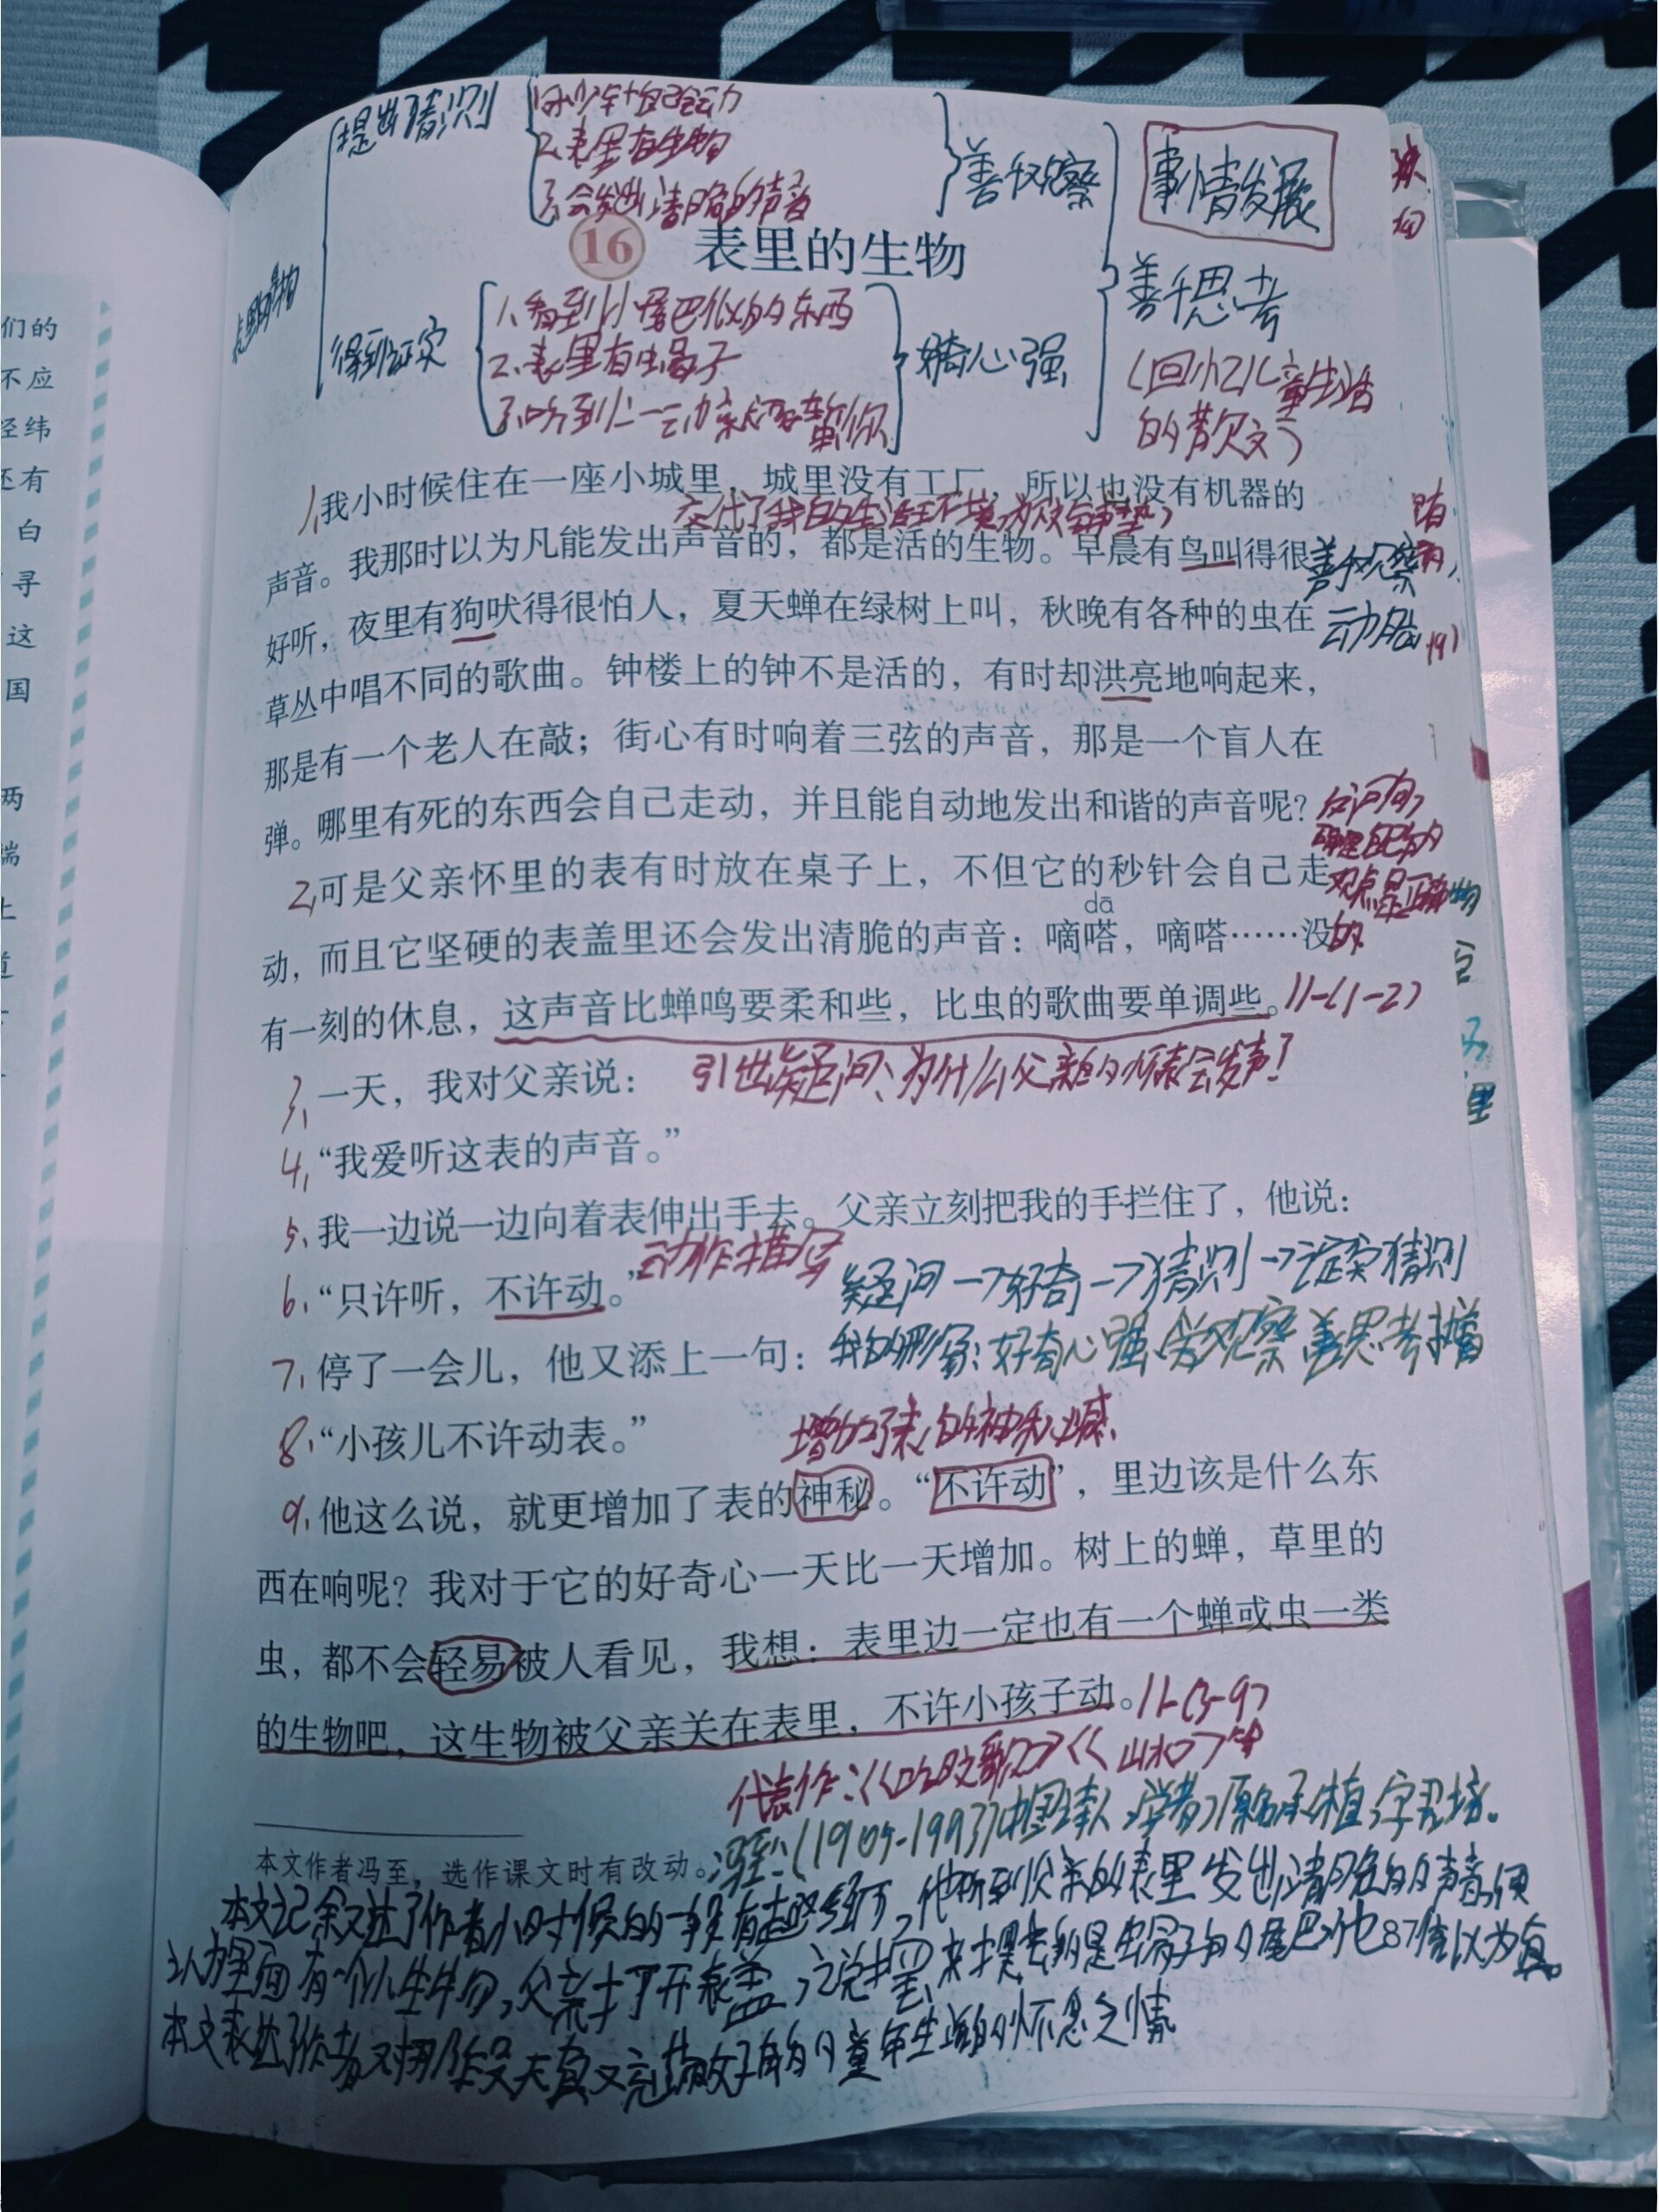 提出猜测
2.表里有生物
3.会发出清脆的声音
善于观察
事情发展
16 表里的生物
善于思考
得到证实
1.看到小尾巴似的东西
2.表里有虫蝎子
好奇心强
(回忆儿童生活
的散文)
1.我小时候住在一座小城里，城里没有工厂，所以也没有机器的
声音。我那时以为凡能发出声音的，都是活的生物。早晨有鸟叫得很
善于观察
好听，夜里有狗吠得很怕人，夏天蝉在绿树上叫，秋晚有各种的虫在
动脑
草丛中唱不同的歌曲。钟楼上的钟不是活的，有时却洪亮地响起来，
那是有一个老人在敲；街心有时响着三弦的声音，那是一个盲人在
弹。哪里有死的东西会自己走动，并且能自动地发出和谐的声音呢？
2.可是父亲怀里的表有时放在桌子上，不但它的秒针会自己走
观点是正确
的
dā
动，而且它坚硬的表盖里还会发出清脆的声音：嘀嗒，嘀嗒……没
有一刻的休息，这声音比蝉鸣要柔和些，比虫的歌曲要单调些。11-(1-2)
3.一天，我对父亲说：
引出疑问、为什么父亲的怀表会发声？
4.“我爱听这表的声音。”
5.我一边说一边向着表伸出手去。父亲立刻把我的手拦住了，他说：
动作描写
6.“只许听，不许动。”
疑问→好奇→猜测→证实猜测
7.停了一会儿，他又添上一句：
我的形象：好奇心强 善观察 善思考
8.“小孩儿不许动表。”
增加了表的神秘感
9.他这么说，就更增加了表的神秘。“不许动”，里边该是什么东
西在响呢？我对于它的好奇心一天比一天增加。树上的蝉，草里的
虫，都不会轻易被人看见，我想：表里边一定也有一个蝉或虫一类
的生物吧，这生物被父亲关在表里，不许小孩子动。11-(3-9)
代表作：《《吟歌》》《《山水》》等
冯至：(1905-1993)中国诗人，学者，原名承植，字君培。
本文作者冯至，选作课文时有改动。
本文记叙了作者小时候的一次有趣经历，他听到父亲的表里发出清脆的声音，便
认为里面有一个小生物，父亲打开表盖，说摆来摆去的是虫蝎子的尾巴，他信以为真。
本文表达了作者对那段天真又充满好奇的童年生活的怀念之情